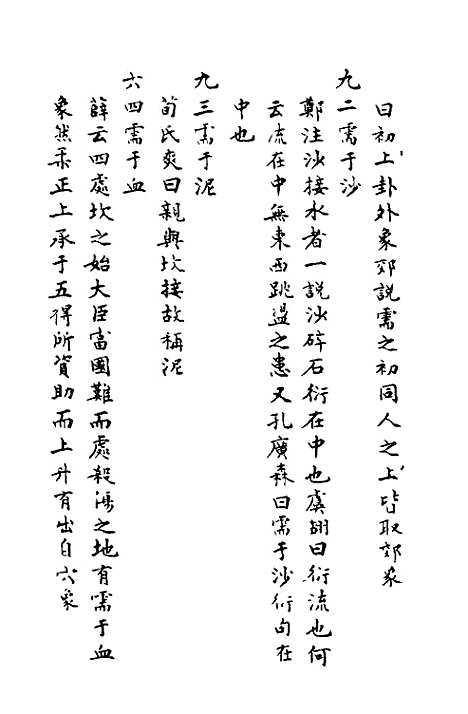 曰初上卦外象郊説需之初同人之上皆取郊象
九二需于沙
鄭注沙接水者一説沙碎石衍在中也虞翃曰衍流也何
云流在中無東西跳盪之患又孔廣森曰需于沙衍句在
中也
九三需于泥
荀氏爽曰親與坎接故稱泥
六四需于血
薛云四處坎之始大臣當國難而處殺傷之地有需于血
象然柔正上承于五得所資助而上升有出自穴象